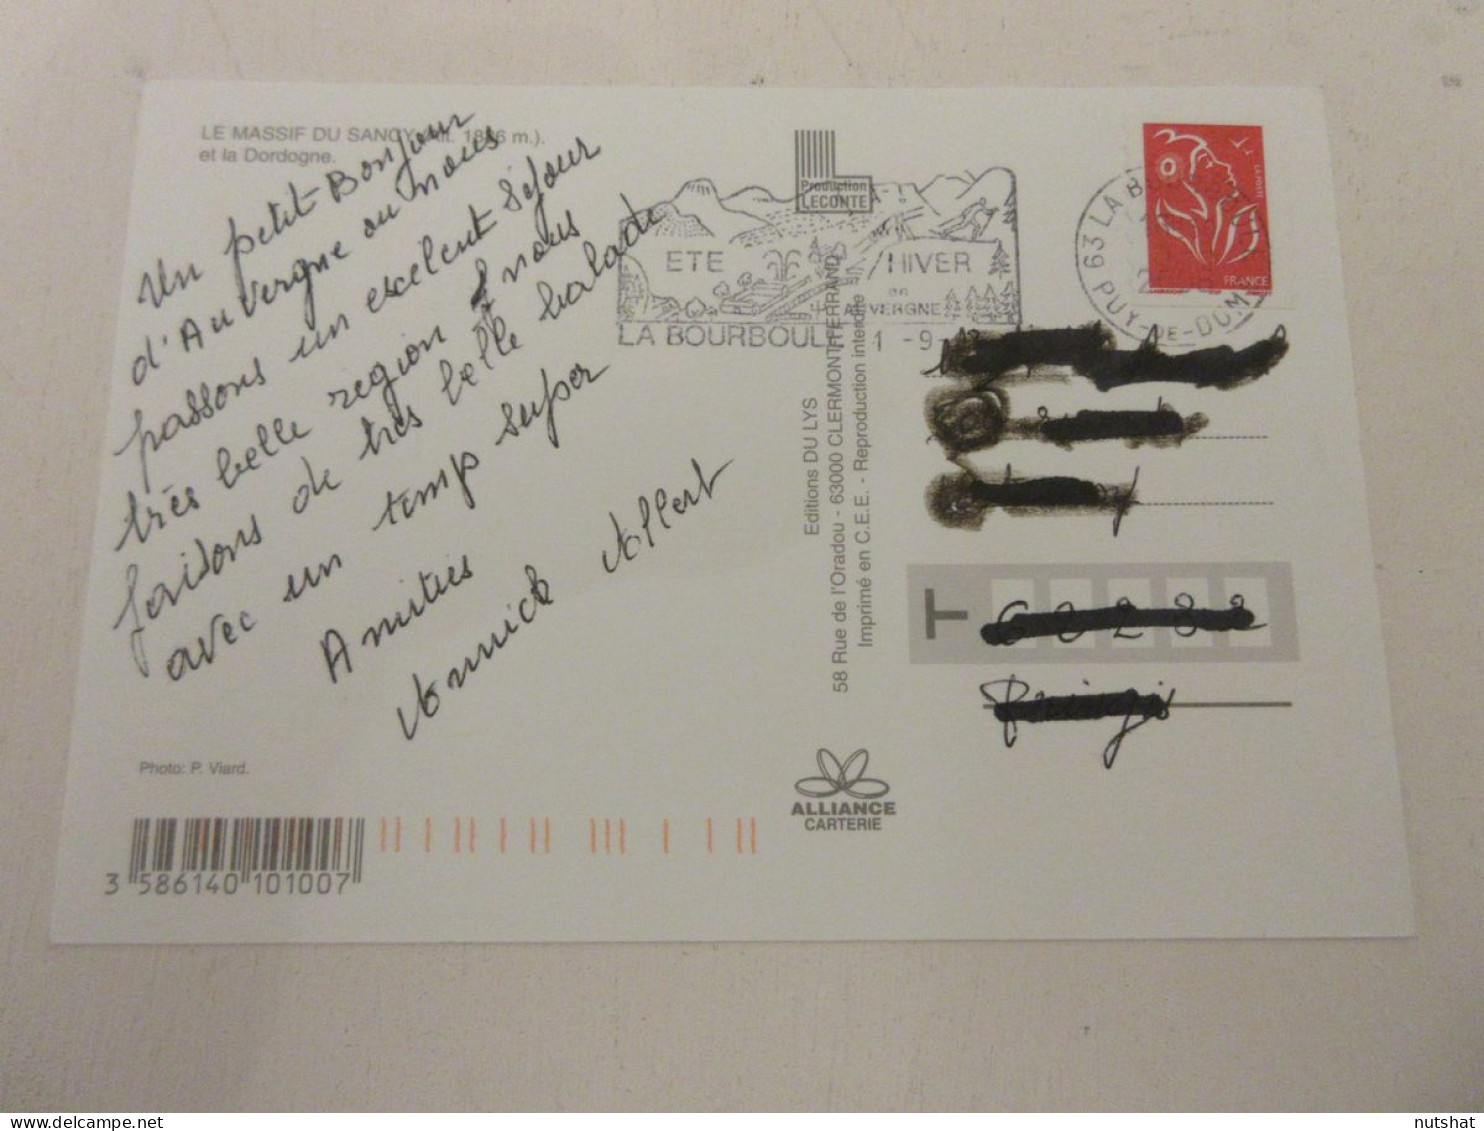 LE MASSIF DU SANCY (Alt. 1886 m.).
et la Dordogne.
Un petit Bonjour
d'Auvergne ou nous
passons un excelent séjour
très belle region & nous
faisons de très belle balade
avec un temp super
Amities
Annick Allert
Photo: P. Viard.
3 586140 101007
Production
LECONTE
ETE HIVER
EN
AUVERGNE
LA BOURBOULE
1 -9-
Editions DU LYS
58 Rue de l'Oradou - 63000 CLERMONT-FERRAND
Imprimé en C.E.E. - Reproduction interdite
ALLIANCE
CARTERIE
63 LA B
PUY-DE-DOME
LA POSTE
FRANCE
T
nutshat